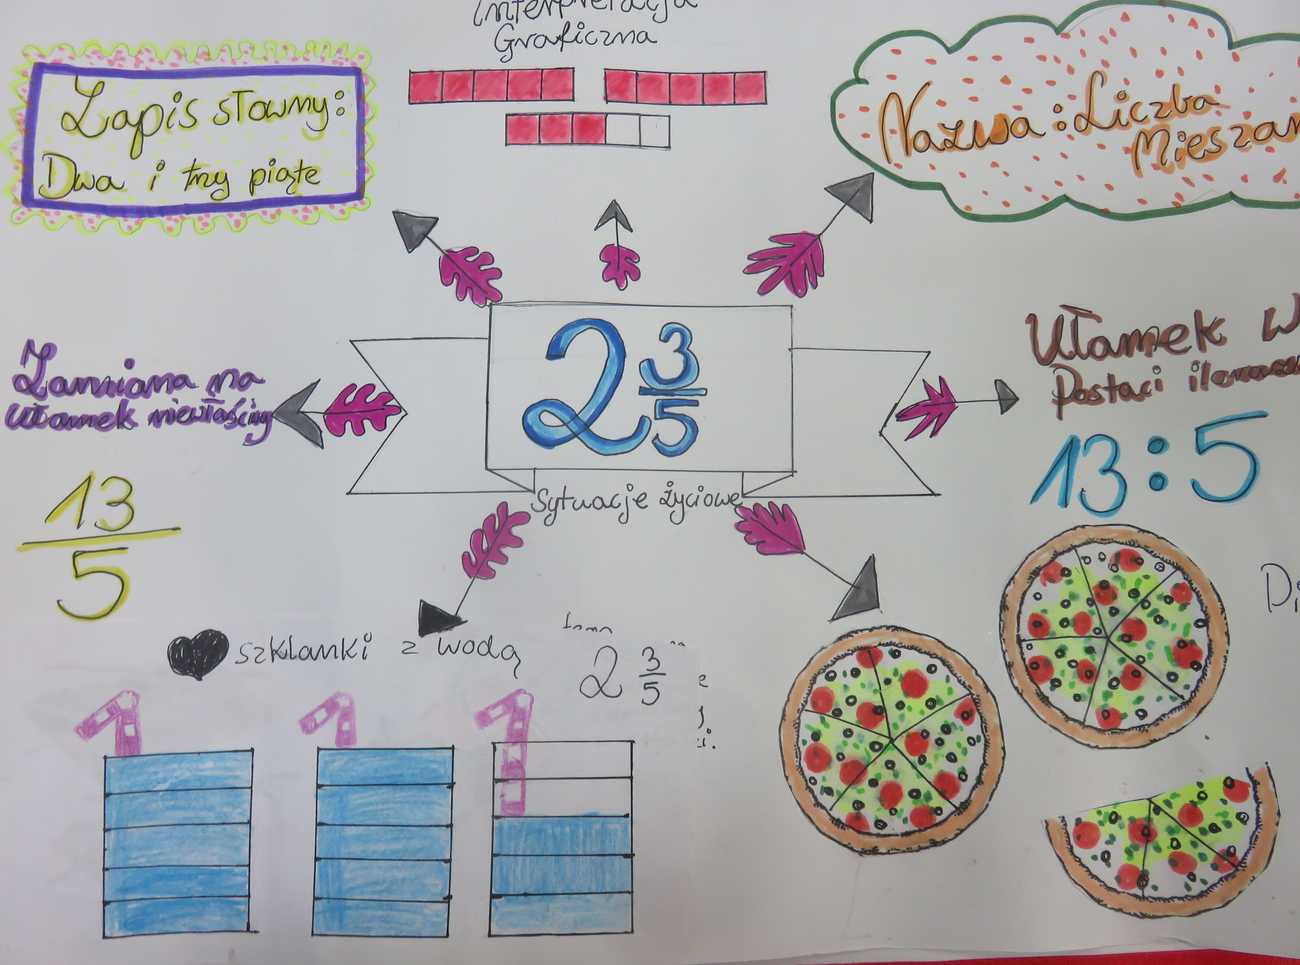 Interpretacja
Graficzna
Zapis słowny:
Dwa i trzy piąte
Nazwa: Liczba
Mieszan
2 3/5
Zamiana na
ułamek niewłaściwy
13/5
Ułamek w
Postaci
13:5
Sytuacje życiowe
szklanki z wodą
2 3/5
Di